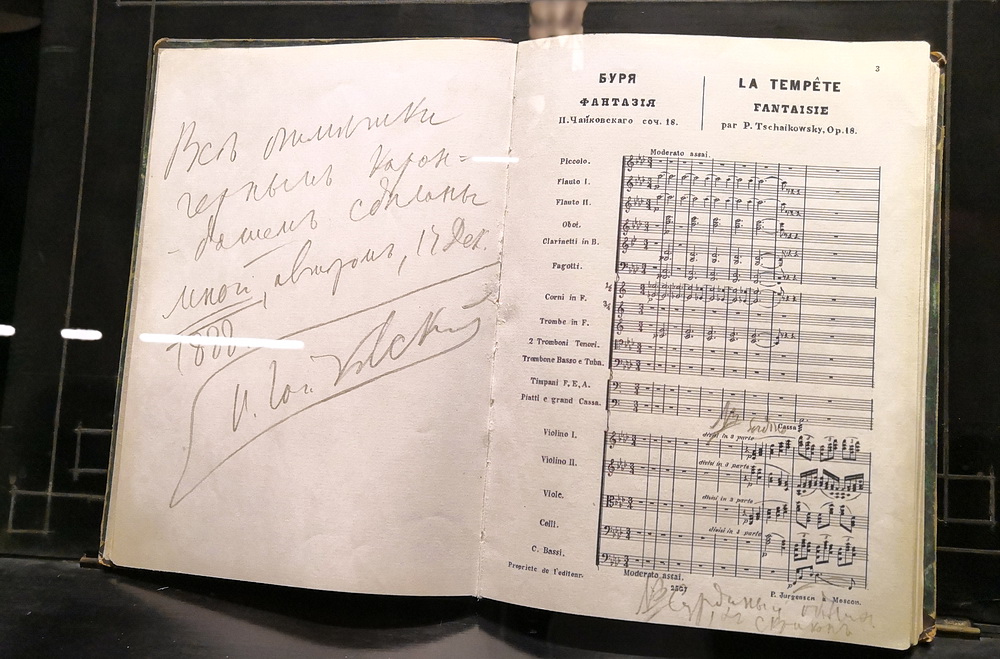 Всѣ отмѣтки
чернымъ каран=
- дашемъ сдѣланы
мной, авторомъ, 17 Дек.
П. Чайковский
3
БУРЯ
ФАНТАЗІЯ
П. Чайковскаго соч. 18.
LA TEMPÊTE
FANTAISIE
par P. Tschaikowsky, Op. 18.
Moderato assai.
Piccolo.
Flauto I.
Flauto II.
Oboi.
Clarinetti in B.
Fagotti.
Corni in F.
Trombe in F.
2 Tromboni Tenori.
Trombone Basso e Tuba.
Timpani F. E, A.
Piatti e grand Cassa.
NB
Cassa
Violino I.
divisi in 3 parte
Violino II.
divisi in 3 parte
Viole.
divisi in 2 parte
Celli.
divisi in 3 parte
C. Bassi.
Moderato assai.
Propriete de l'editeur.
2857
P. Jurgenson à Moscou.
NB Сурдины